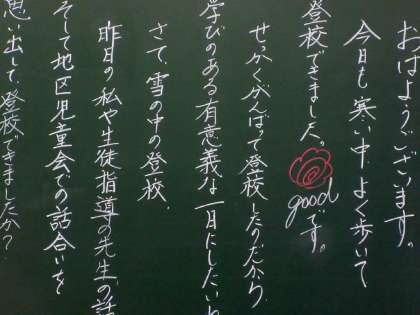 おはようございます
今日も寒い中、よく歩いて
登校できました。goodです。
せっかくがんばって登校したのだから
学びのある有意義な一日にしたいね
さて、雪の中の登校、
昨日の私や生徒指導の先生の話
そして地区児童会での話合いを
思い出して、登校できましたか？